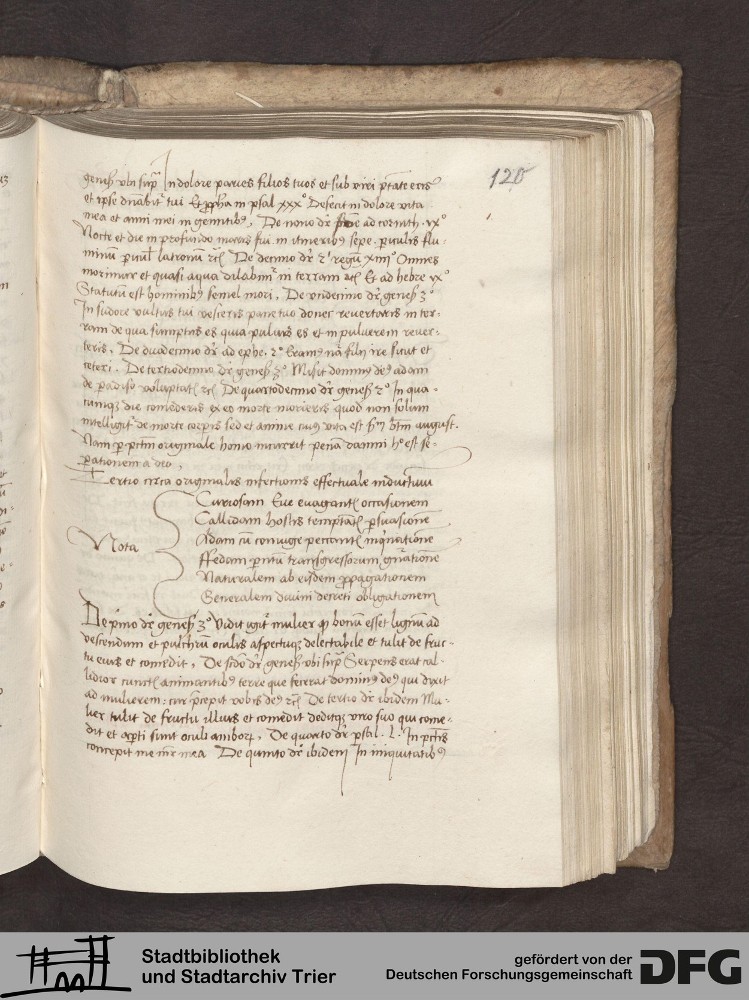 120
genes̄ vbi sup̄ In dolore paries filios tuos et sub viri p̄tate eris
et ipse dn̄abit᷒ tui Et ꝓpha in psal xxx° Defecit in dolore vita
mea et anni mei in gemitibꝫ, De nono dr̄ ad corinth. xj°
Nocte et die in profundo maris fui in itineribꝫ sepe. p̱iculis flu-
minū p̱icul̄ latronum ꝛc̄ De decimo dr̄ 2° regū xiiij° Omnes
morimur et quasi aqua dilabim᷒ in terram ꝛc̄ Et ad hebre ix°
Statutū est hominibꝫ semel mori, De vndecimo dr̄ genes̄ 3°
In sudore vultus tui vesceris pane tuo donec reuertaris in ter-
ram de qua sumptus es quia puluis es et in puluerem reuer-
teris, De duodecimo dr̄ ad ephe. 2° Eramꝫ nā filij ire sicut et
ceteri. De tertiodecimo dr̄ genes̄ 3° Misit dominꝫ deꝫ adam
de padiso voluptat̄ ꝛc̄ De quartodecimo dr̄ genes̄ 2° In qua-
cunqꝫ die comederis ex eo morte morieris quod non solum
intelligit᷒ de morte corporis sed et anime cuiꝫ vita est sm̄ btm̄ august.
Nam p̱ pctm̄ originale homo incurrit penā damni h° est se-
p̱ationem a deo,
Tertio circa originalis infectionis effectuale inductiuū
Nota
Curiosam Eue euagant̄ occasionem
Callidam hostis temptat̄ p̱suasionē
Adam cū coniuge peccant̄ inq̇natione
Ffedam p̱ntū transgressorum gn̄atione
Naturalem ab eisdem ꝓpagationem
Generalem diuini decreti obligationem
De ṗmo dr̄ genes̄ 3° Vidit igit᷒ mulier ꝙ bonū esset lignū ad
vescendum et pulchrū oculis aspectuqꝫ delectabile et tulit de fruc-
tu eius et comedit, De sc̄do dr̄ genes̄ vbi sup̄ Serpens erat cal-
lidior cunct̄ animantibꝫ terre que fecerat dominꝫ deꝫ qui dixit
ad mulierem: cur p̄cepit vobis deꝫ ꝛc̄ De tertio dr̄ ibidem Mu-
lier tulit de fructu illius et comedit deditqꝫ viro suo qui come-
dit et ap̱ti sunt oculi amboꝝ, De quarto dr̄ psal. l. In pctis̄
concepit me mr̄ mea De quinto dr̄ ibidem In iniquitatibꝫ
Stadtbibliothek
und Stadtarchiv Trier
gefördert von der
Deutschen Forschungsgemeinschaft
DFG